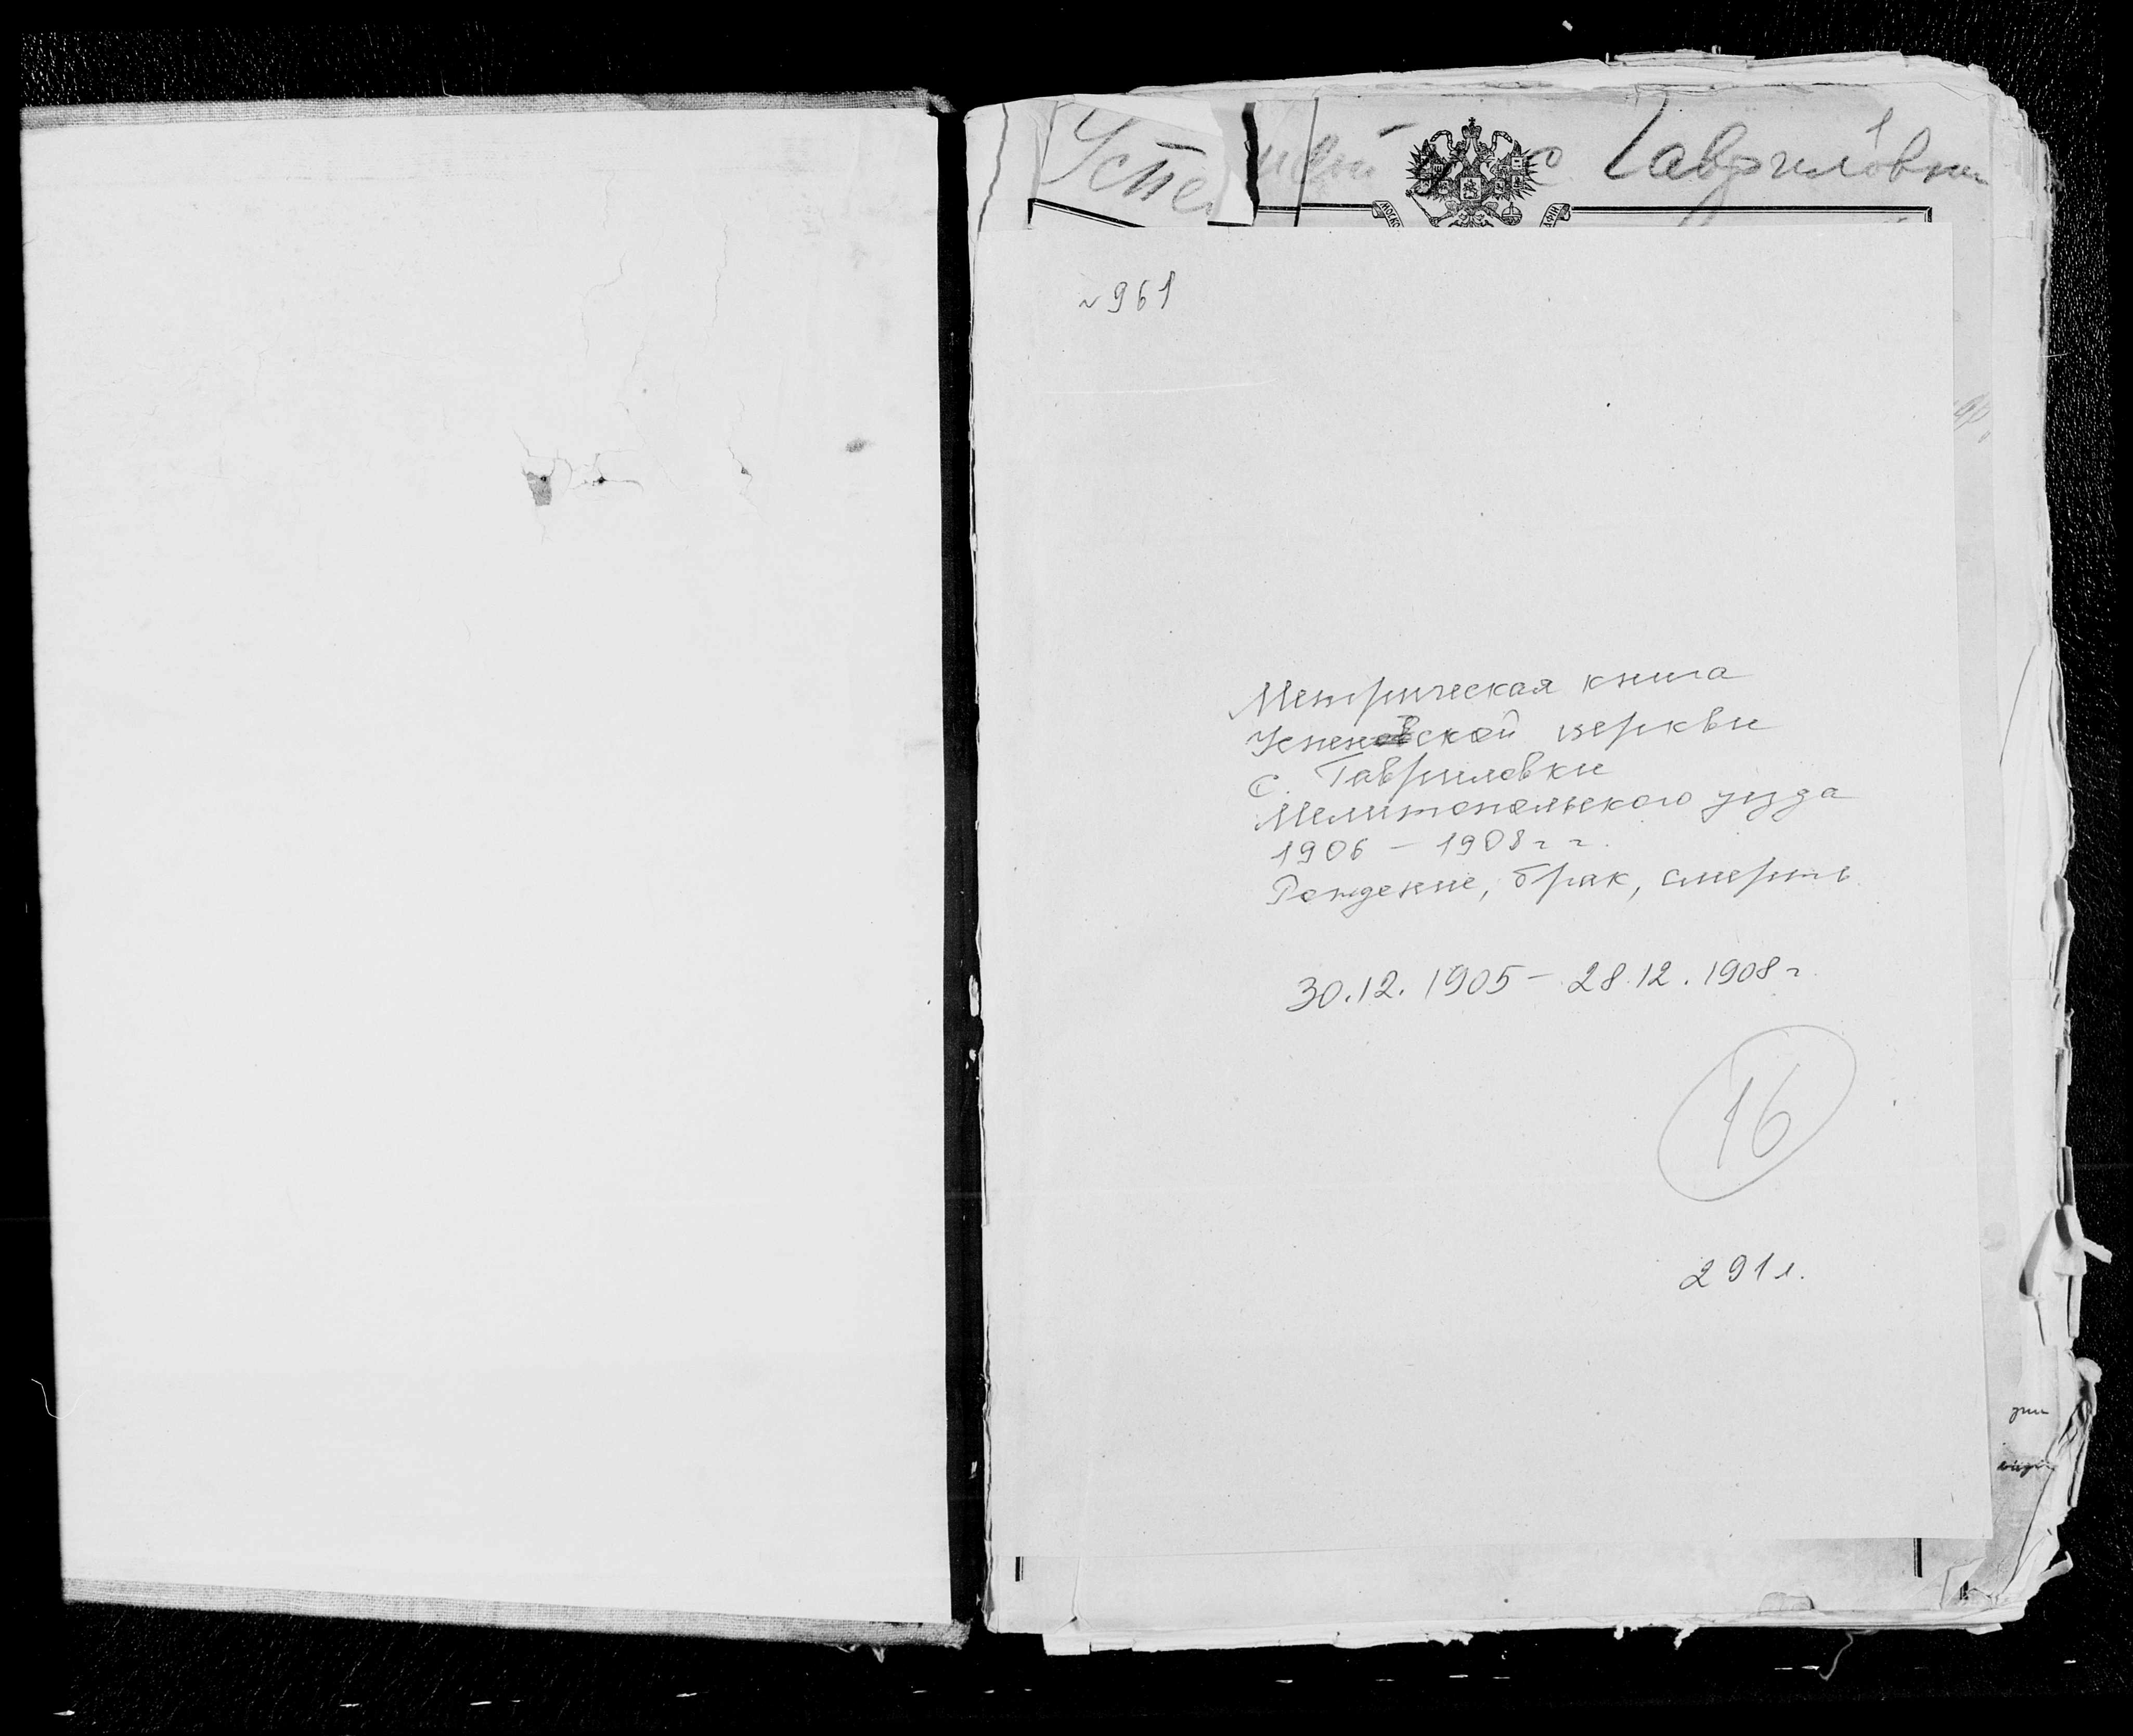 Успе
с. Гавриловки
1
№ 961
Метрическая книга
Успенской церкви
с. Гавриловки
Мелитопольского уезда
1906 – 1908 г г.
Рождение, брак, смерть
30.12.1905 – 28.12.1908 г.
16
291 л.